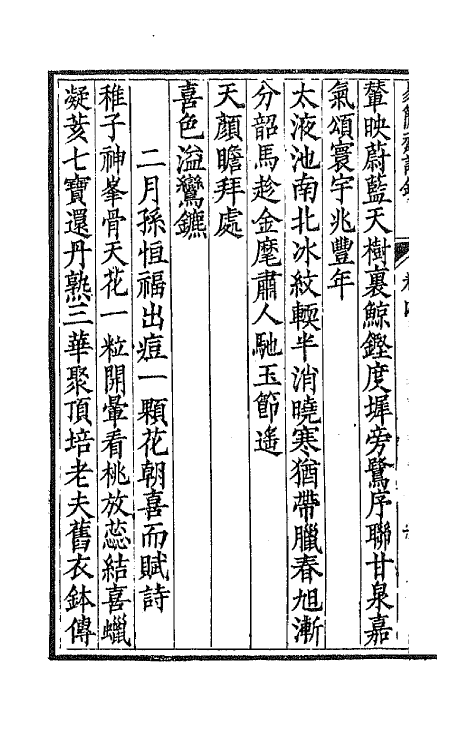 輦映蔚藍天樹裏鯨鏗度墀旁鷺序聯甘泉嘉
氣頌寰宇兆豐年
太液池南北冰紋輭半消曉寒猶帶臘春旭漸
分韶馬趁金麾肅人馳玉節遙
天顏瞻拜處
喜色溢鸞鑣
二月孫恒福出痘一顆花朝喜而賦詩
稚子神峯骨天花一粒開暈看桃放蕊結喜蠟
凝荄七寶還丹熟三華聚頂培老夫舊衣鉢傳